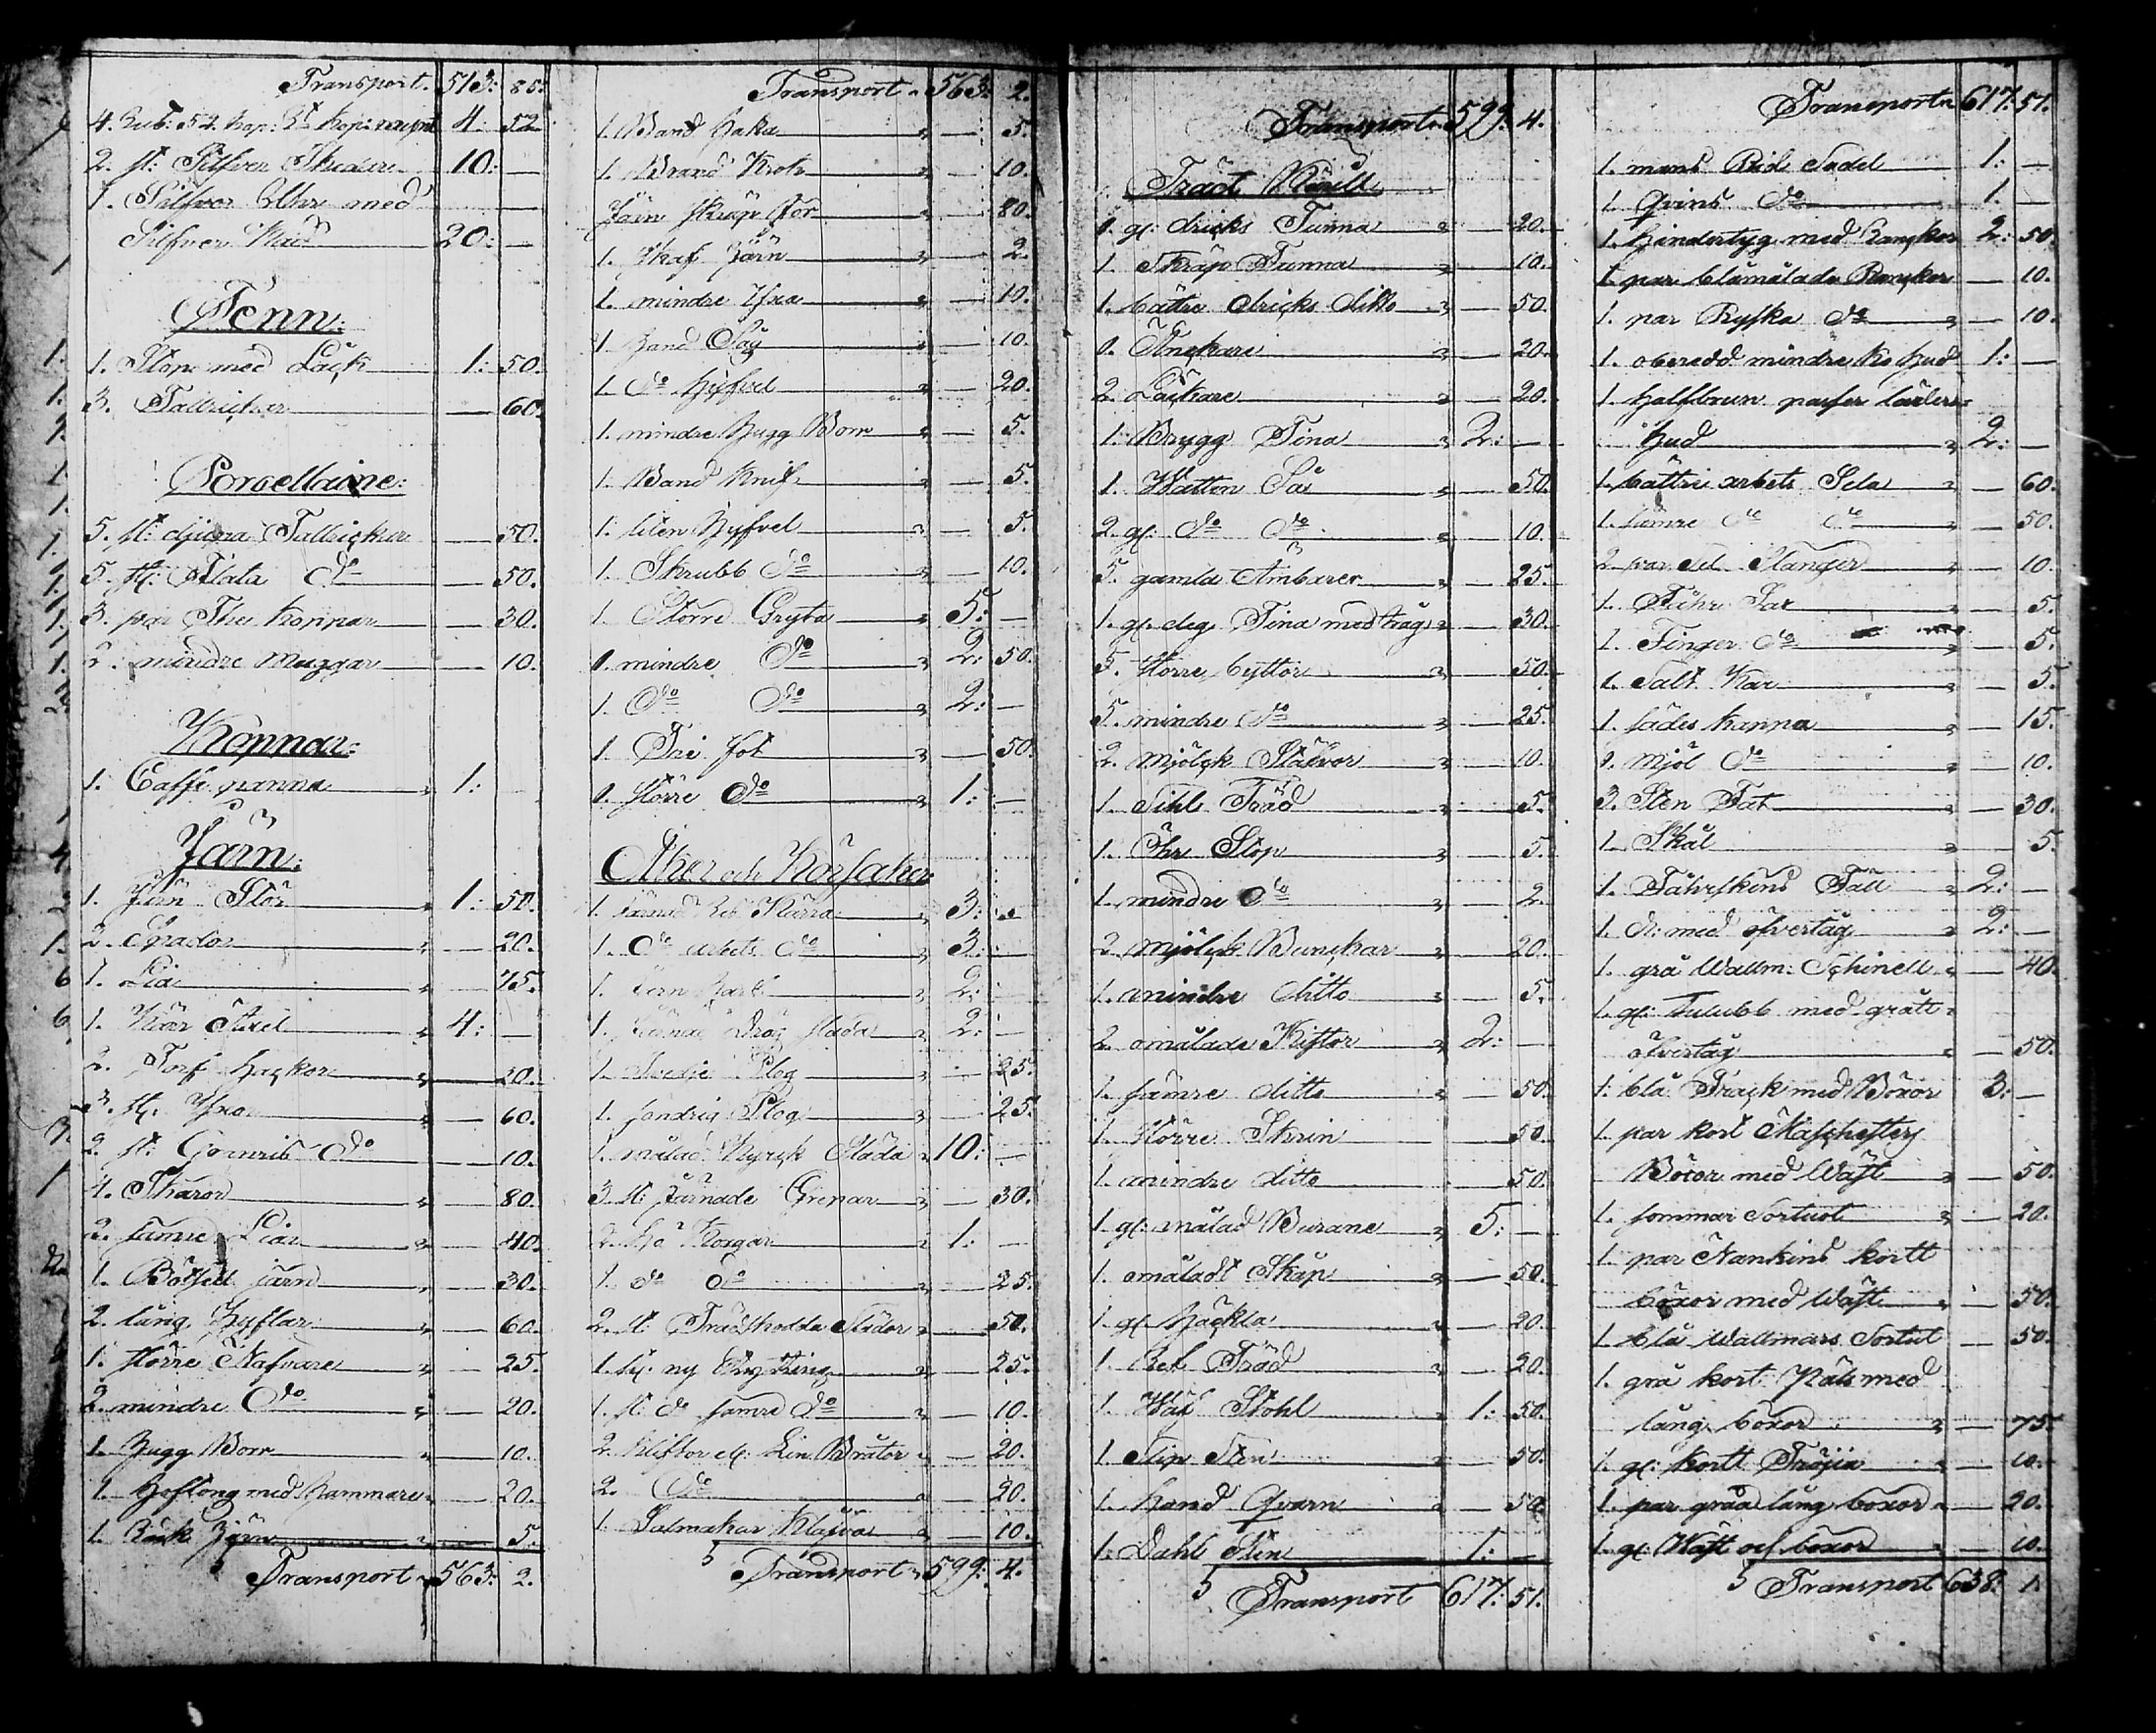 Transport. 513: 85.
4. Rub: 52. Kop: 4: 52
2. st: Silfver Skedar 10: —
1. Silfver Uhr med
Silfver Käd 20: —
Tenn:
1. Stop med Låck 1: 50.
3. Tallrickar — 60.
Porcellaine:
5. st: djupa Tallrickar — 50.
5. st: Flata do — 50.
3. par The Koppar — 30.
2. mindre muggar — 10.
Koppar:
1. Caffe panna 1:
Järn:
1. Järn Stör 1: 50.
2. Spador — 20.
1. Lia — 15.
1. Kär Axel 4: —
2. Torf hackor — 20.
3. st. Yxor — 60.
2. st: do — 10.
4. Skäror — 80.
2. sämre Liar — 40.
1. järn — 30.
2. lång Hyflar — 60.
1. större Nafvare — 25.
2. mindre do — 20.
1. Hugg Borr — 10.
1. Hoftong med Hammare — 20.
1. Järn — 5.
Transport 563: 2.
Transport 563: 2.
1. Band Haka — 5.
1. Brand Krok — 10.
Järn skrap för — 80.
1. Skaf Järn — 2.
1. mindre Yxa — 10.
1. Hand Såg — 10.
1. do Hyfvel — 20.
1. mindre Hugg Borr — 5.
1. Band Knif — 5.
1. liten Hyfvel — 5.
1. Skrubb do — 10.
1. Större Gryta 5: —
1. mindre do 2: 50.
1. do do 2: —
1. Tri fot — 50.
1. större do 1: —
Åker och Körsaker
1. järnad Res Kärra 3:
1. do arbets do 3:
1. 2: —
1. Järnad Drög släda 2: —
1. Svedje Plog — 25.
1. sandrig Plog — 25.
1. målad Kyrck Släda 10: —
3. st. Järnade Grenar — 30.
2. Hö Korgar 1: —
1. do do — 25.
2. st: Trädskodda Slädor — 50.
1. st. ny — 25.
1. st do sämre do — 10.
2. Lin Bråtor — 20.
2. do — 20.
1. Salmakar Klåfva — 10.
Transport 599: 4.
Transport 599: 4.
Träd Käril
1. gl: dricks Tunna — 20.
1. Skräp Tunna — 10.
1. bättre dricks ditto — 50.
1. — 20.
2. Låckare — 20.
1. Brygg Tina 2: —
1. Watten Så — 50.
2. gl. do do — 10.
5. gamla Ambarer — 25.
1. gl. deg Tina med tråg — 30.
5. större byttor — 50.
5. mindre do — 25.
2. mjölck Stäfvor — 10.
1. Sihl Träd — 5.
1. Öhr Stop — 5.
1. mindre do — 2.
2. mjölck Bunckar — 20.
1. mindre ditto — 5.
2. omålade Kistor 2: —
1. sämre ditto — 50.
1. större Skrin 50.
1. mindre ditto 50.
1. gl. målad Burane 5: —
1. omåladt Skåp — 50.
1. gl. Häckla — 20.
1. Träd — 20.
1. Wäf Stohl 1: 50.
1. Slip Sten — 50.
1. hand Qvarn — 50.
1. Dahl Sten 1: —
Transport 617: 51.
Transport 617: 51.
1. mans Rid Sadel 1: —
1. Qvins do 1. —
1. hindertyg med Ranckor 2: 50.
1. par blåmålade Ranckor — 10.
1. par Ryska do — 10.
1. oberedd mindre Ko hud 1: —
1. Halfbrun
hud 2: —
1. bättre arbets Sela — 60.
1. sämre do do — 50.
2. par Sel Stänger — 10.
1. Fåhr Sax — 5.
1. Finger do — 5.
1. Salt Kar — 5.
1. sädes kappa — 15.
1. mjöl do — 10.
3. Sten Fat — 30.
1. Skål — 5.
1. Fåhrskins Fäll 2: —
1. d: med öfvertåg 2: —
1. grå Wallm: Schinell — 40.
1. gl: Tulubb med grått
öfvertåg — 50.
1. blå Frack med Böxor 3: —
1. par kort
Böxor med Wäst — 50.
1. sommar Sortut — 20.
1. par Nankins kortt
böxor med Wäst — 50.
1. blå Wallmars Sortut — 50.
1. grå kort Päls med
lång böxor — 75.
1. gl: kortt Tröjia — 10.
1. par gråa lång böxor — 20.
1. gl. Wäst och böxor — 10.
Transport 638: 1.